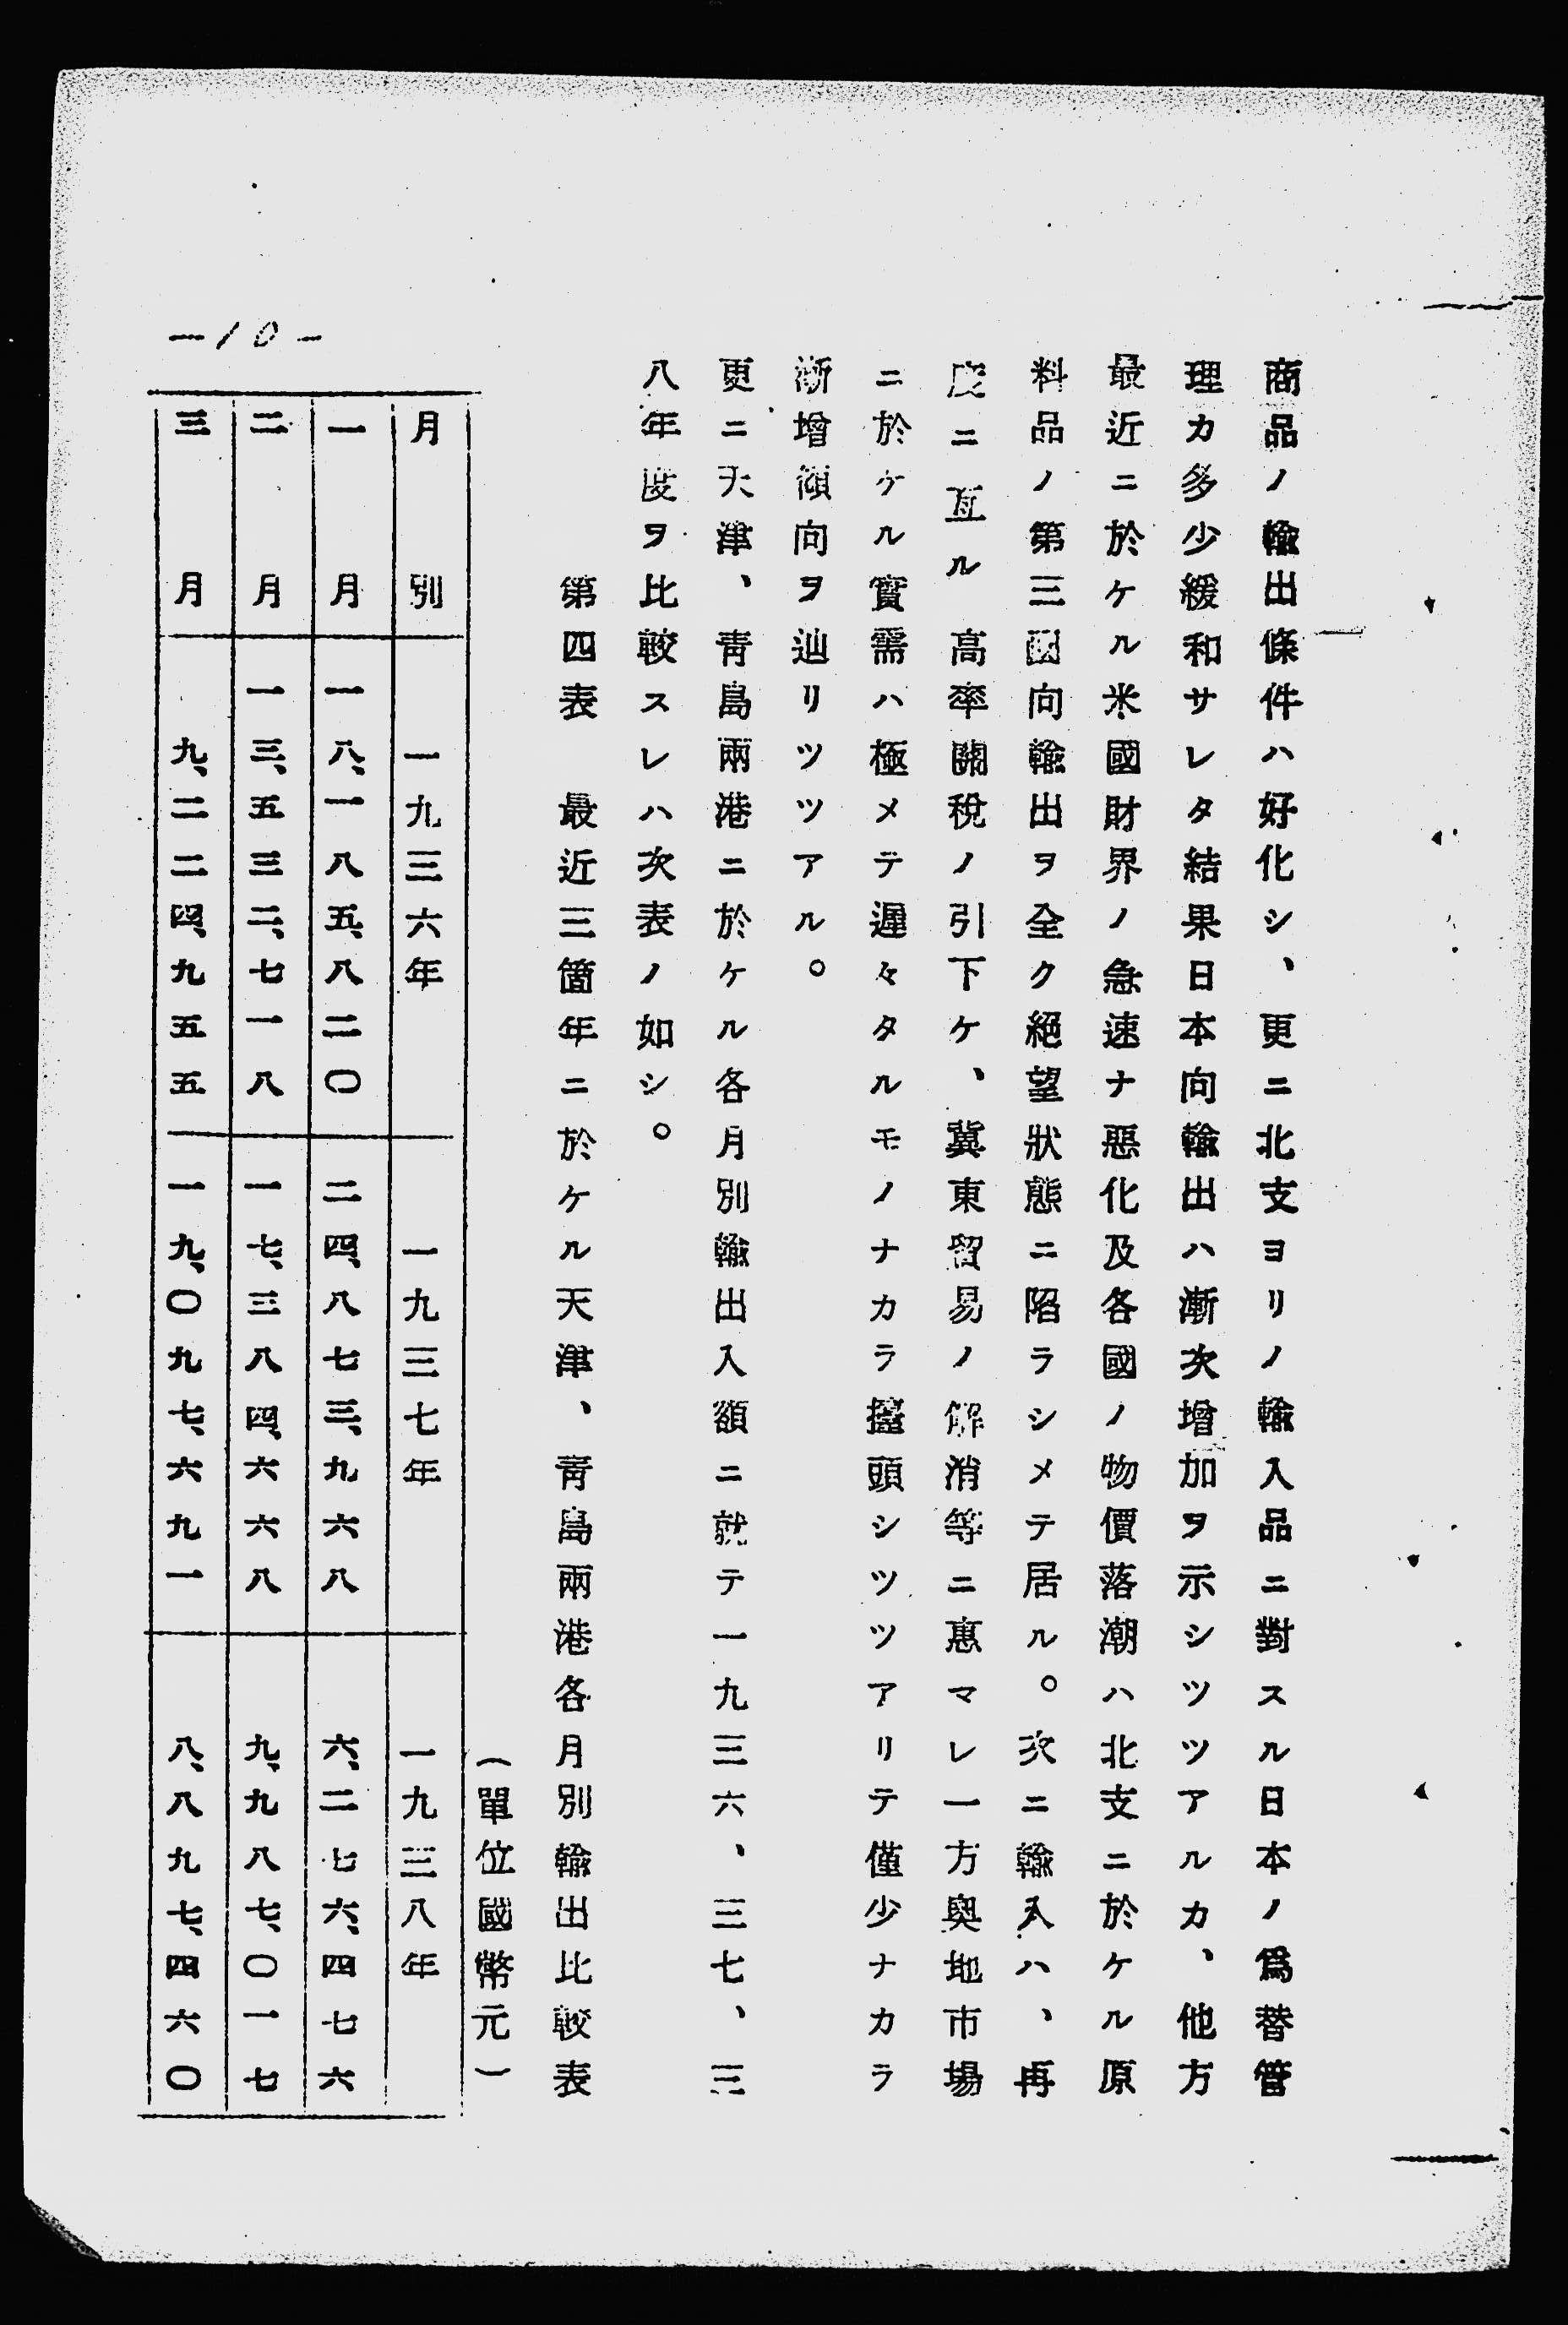 商品ノ輸出條件ハ好化シ、更ニ北支ヨリノ輸入品ニ對スル日本ノ爲替管
理カ多少緩和サレタ結果日本向輸出ハ漸次增加ヲ示シツツアルカ、他方
最近ニ於ケル米國財界ノ急速ナ惡化及各國ノ物價落潮ハ北支ニ於ケル原
料品ノ第三國向輸出ヲ全ク絕望狀態ニ陷ラシメテ居ル。次ニ輸入ハ、再
度ニ亙ル高率關稅ノ引下ケ、冀東貿易ノ解消等ニ惠マレ一方奧地市場
ニ於ケル實需ハ極メテ遲々タルモノナカラ擡頭シツツアリテ僅少ナカラ
漸增傾向ヲ辿リツツアル。
更ニ天津、靑島兩港ニ於ケル各月別輸出入額ニ就テ一九三六、三七、三
八年度ヲ比較スレハ次表ノ如シ。
第四表　最近三箇年ニ於ケル天津、靑島兩港各月別輸出比較表
（單位國幣元）
月別　一九三六年　一九三七年　一九三八年
一月　一八、一八五、八二〇　二四、八七三、九六八　六、二七六、四七六
二月　一三、五三二、七一八　一七、三八四、六六八　九、九八七、〇一七
三月　九、二二四、九五五　一九、〇九七、六九一　八、八九七、四六〇
-10-